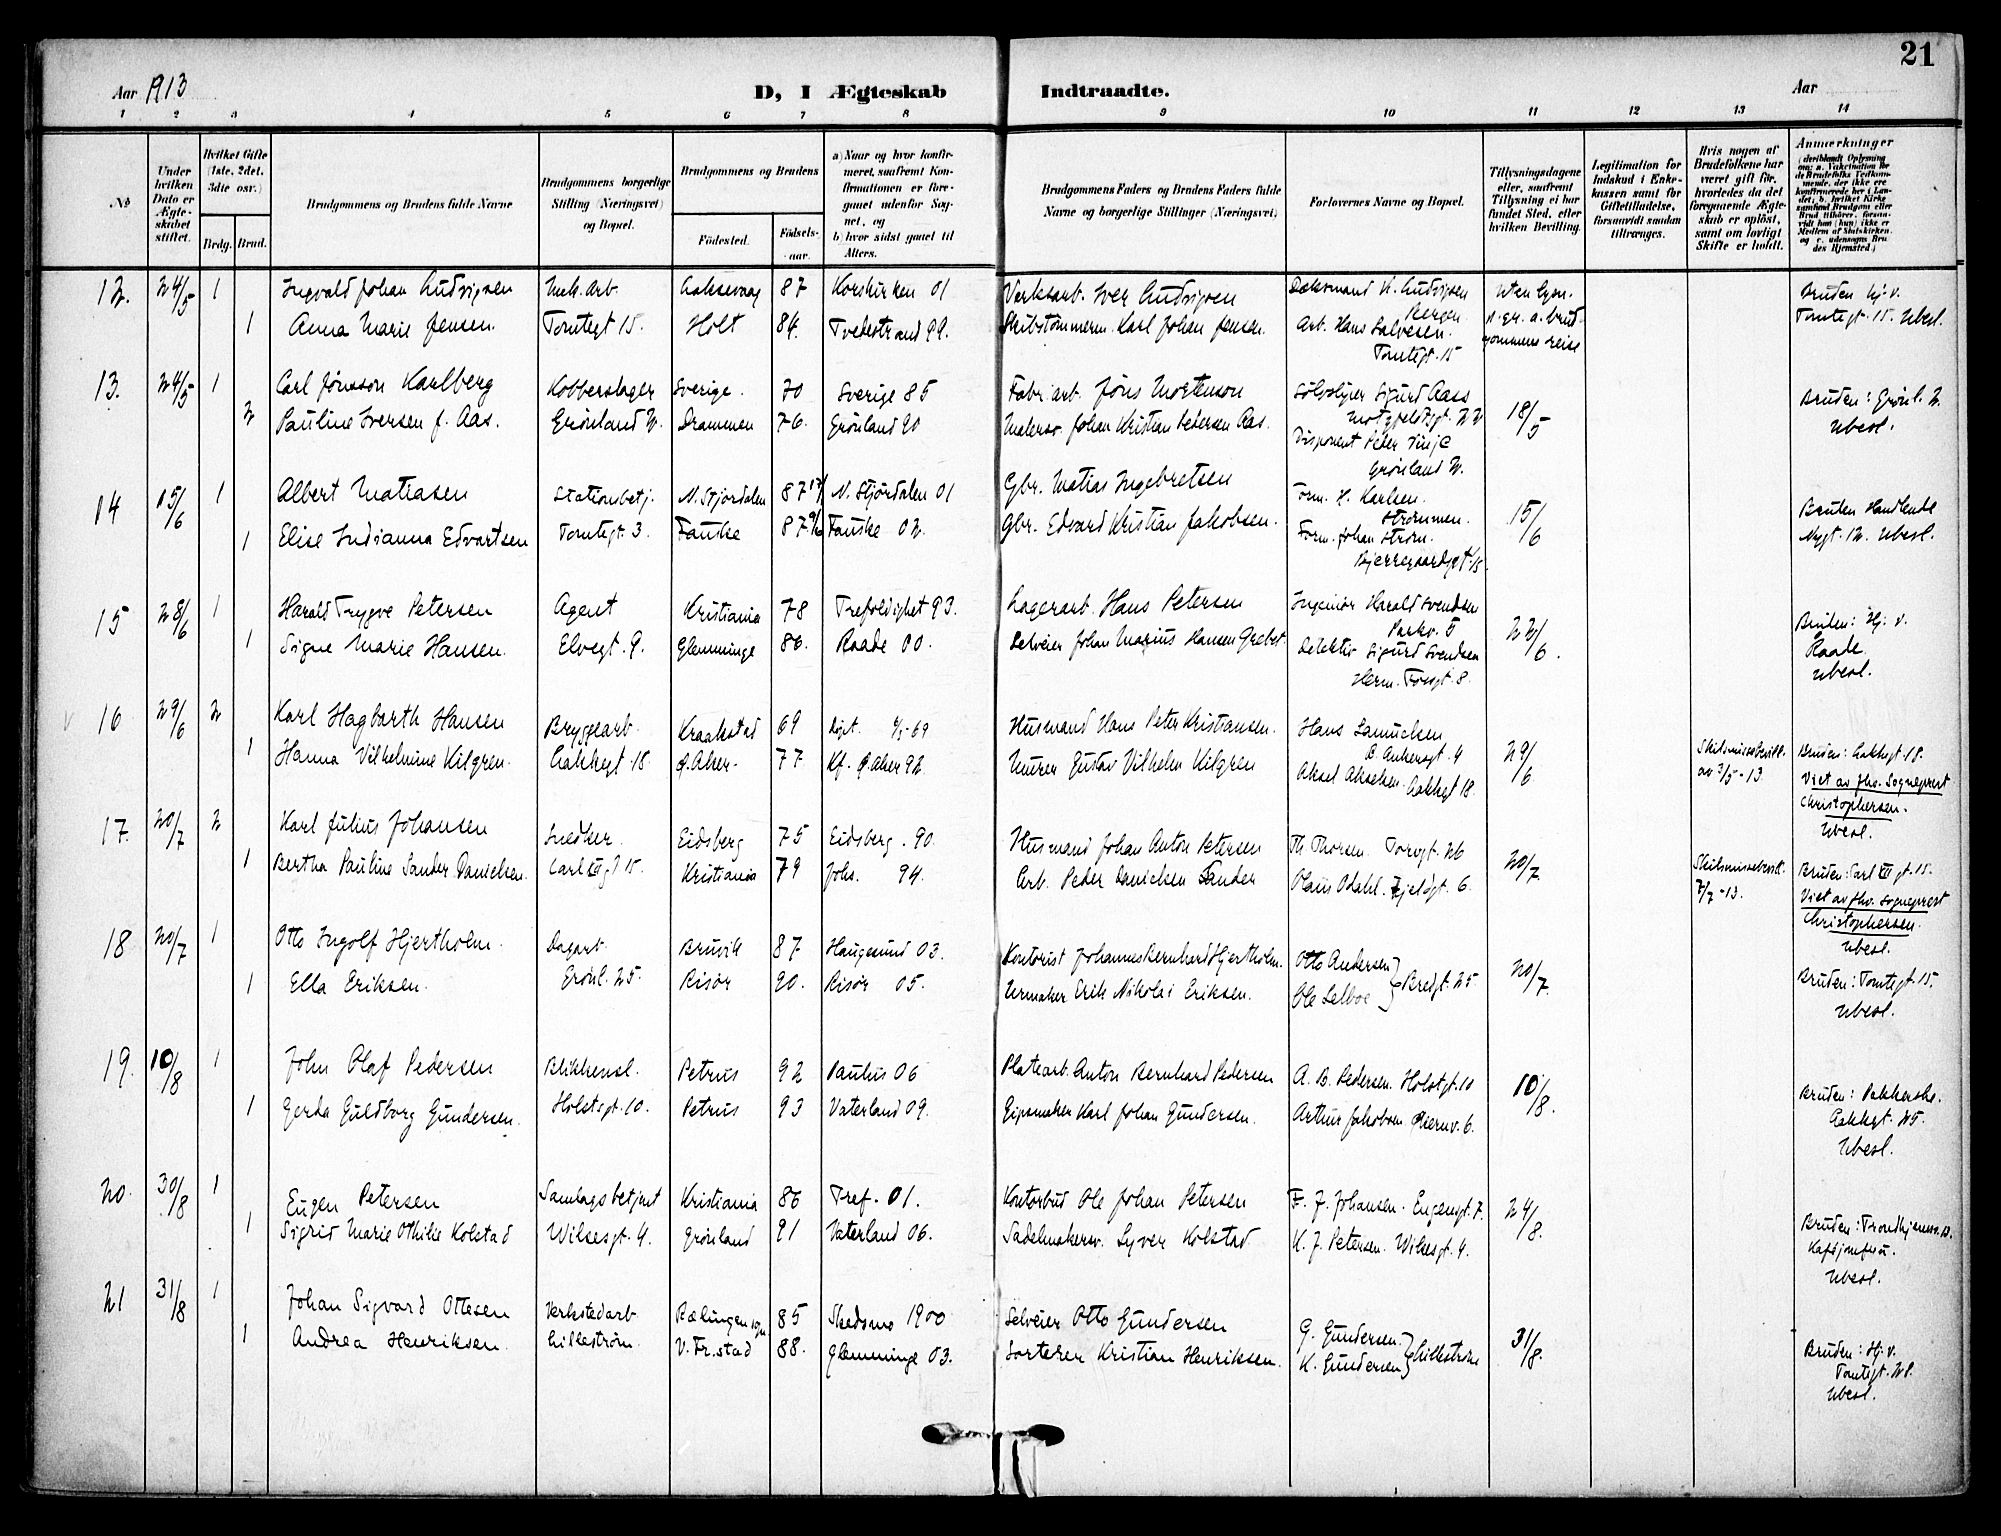 21
Aar 1913
D, I Ægteskab Indtraadte.
Aar
1 2 3 4 5 6 7 8 9 10 11 12 13 14
No
Under hvilken Dato er Ægteskabet stiftet.
Hvilket Gifte (1ste, 2det, 3die osv.)
Brdg. Brud.
Brudgommens og Brudens fulde Navne
Brudgommens borgerlige Stilling (Næringsvei) og Bopæl.
Brudgommens og Brudens
Fødested.
Fødselsaar.
a) Naar og hvor konfirmeret, saafremt Konfirmationen er foregaaet udenfor Sognet, og
b) hvor sidst gaaet til Alters.
Brudgommens Faders og Brudens Faders fulde Navne og borgerlige Stillinger (Næringsvei)
Forlovernes Navne og Bopæl.
Tillysningsdagene eller, saafremt Tillysning ei har fundet Sted, efter hvilken Bevilling.
Legitimation for Indskud i Enkekassen samt for Giftetilladelse, forsaavidt saadan tiltrænges.
Hvis nogen af Brudefolkene har været gift før, hvorledes da det foregaaende Ægteskab er opløst, samt om lovligt Skifte er holdt.
Anmerkninger
12. 24/5 1 Ingvald Johan Ludvigsen Mek. arb. Laksevaag 87 Korskirken 01 Verksarb. Iver Ludvigsen Bergen Bruden Hj. v.
1 Anna Marie Jensen. Tomtegt 15. Holt 84. Tvedestrand 99. Skibstømmerm. Karl Johan Jensen. Arb. Hans Salvesen. Tomtegt. 15 gommens reise Tomtegt. 15. Ubesl.
13. 24/5 1 Carl Jönsson Karlberg Kobberslager Sverige. 70 Sverige 85 Fabr. arb. Jöns Mortenson Sigurd Aass 18/5 Bruden: Grønl. 2.
2 Pauline Iversen f. Aas. Grønland 2. Drammen 76. Grønland 90 Malersv. Johan Kristian Pedersen Aas. Disponent Peter Grønland 2. Ubesl.
14 15/6 1 Albert Matiasen Stationsbetj. N. Stjørdalen 87 N. Stjørdalen 01 Gbr. Matias Ingebretsen Form. H. Karlsen. Strømmen. 15/6 Bruden Handlende
1 Elise Indianna Edvartsen Tomtegt. 3. Fauske 87 Fauske 02. Gbr. Edvard Kristian Jakobsen. Form. Johan Strøm. Bjerregaardsgt. Nygt. 12. Ubesl.
15 28/6 1 Harald Trygve Petersen Agent Kristiania 78 Trefoldighet 93. Lagerarb. Hans Petersen Ingeniør Harald Svendsen Parkv. 5 22/6. Bruden: Hj. v.
1 Signe Marie Hansen. Elvegt. 9. Glemminge 86. Raade 00. Selveier Johan Marius Hansen Grebst. Detektiv Sigurd Svendsen Herm. Fossgt. 8. Raade. Ubesl.
16 29/6 2 Karl Hagbarth Hansen Bryggearb. Kraakstad 69 Døpt. Husmand Hans Peter Kristiansen. Hans Samuelsen C. Ankersgt. 4 29/6 Skilsmissebevill. av 3/5-13 Bruden: Lakkegt. 18.
1 Hanna Vilhelmine Kilgren. Lakkegt. 18 Ø. Aker. 77 Kf. Ø. Aker 92. Murer Gustav Vilhelm Kilgren Aksel Akselsen. Lakkegt 18. Viet av fhv. Sogneprest Christophersen. Ubesl.
17. 20/7 2 Karl Julius Johansen Snedker. Eidsberg 75 Eidsberg. 90. Husmand Johan Anton Petersen Th. Thorsen. Torvgt. 26 20/7. Skilsmissebevill. 7/7-13. Bruden: Carl XII gt. 15.
1 Bertha Pauline Sander Danielsen. Carl XII gt 15. Kristiania 79 Johs. 94. Arb. Peder Danielsen Sander Olaus Odahl. 6. Viet av fhv. sogneprest Christophersen. Ubesl.
18 20/7 1 Otto Ingolf Hjertholm. Dagarb. Bruvik 87 Haugesund 03. Kontorist Johannes Bernhard Hjertholm. Otto Andersen 20/7. Bruden: Tomtegt. 15.
1 Ella Eriksen. Grønl. 25. Risør 90. Risør 05. Urmaker Erik Nikolai Eriksen. Ole Selboe } Bredgt. 25. Ubesl.
19. 10/8 1 John Olaf Pedersen Blikkensl. Petrus 92 Paulus 06 Platearb. Anton Bernhard Pedersen A. B. Pedersen. Holstgt. 10 10/8. Bruden: Pakkerske.
1 Gerda Guldborg Gundersen. Holstsgt. 10. Petrus 93 Vaterland 09. Gipsmaker Karl Johan Gundersen. Arthur Jakobsen. 6. Lakkegt. 25. Ubesl.
20. 30/8 1 Eugen Petersen Samlagsbetjent Kristiania 86 Tref. 01. Kontorbud Ole Johan Petersen F. J. Johansen. Eugensgt. 7. 24/8. Bruden: Trondhjemsv. 13.
1 Sigrid Marie Othilie Kolstad Wilsesgt. 4. Grønland 91 Vaterland 06. Sadelmakersv. Syver Kolstad K. J. Petersen. Wilsesgt. 4. Ubesl.
21 31/8 1 Johan Sigvard Ottesen Verkstedarb. Rælingen sogn 85 Skedsmo 1900 Selveier Otto Gundersen G. Gundersen. 31/8. Bruden: Hj. v.
1 Andrea Henriksen. Lillestrøm. V. Fr.stad 88. Glemminge 03. Sorterer Kristian Henriksen. K. Gundersen } Tomtegt. Ubesl.